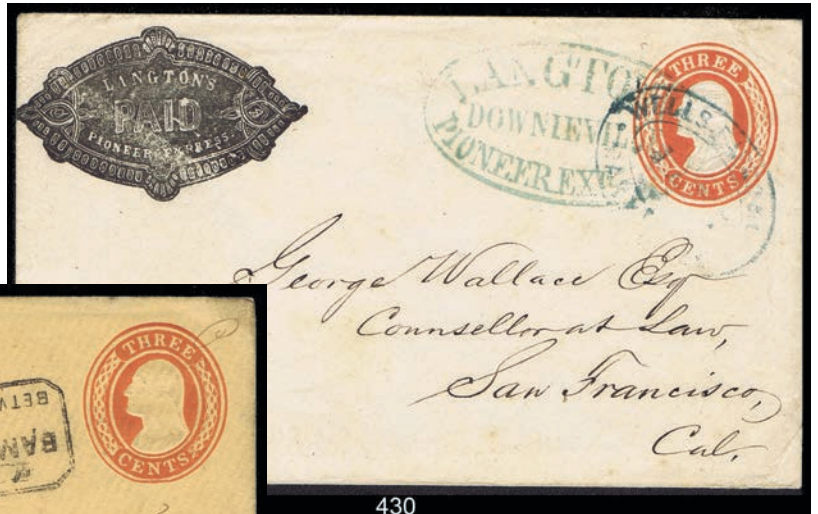 LANGTON'S
PAID
PIONEER EXPRESS.
LANGTO
DOWNIEVIL
PIONEER EX
WELLS
THREE
CENTS
George Wallace Esq
Counsellor at Law,
San Francisco,
Cal.
THREE
CENTS
BETW
BAM
430